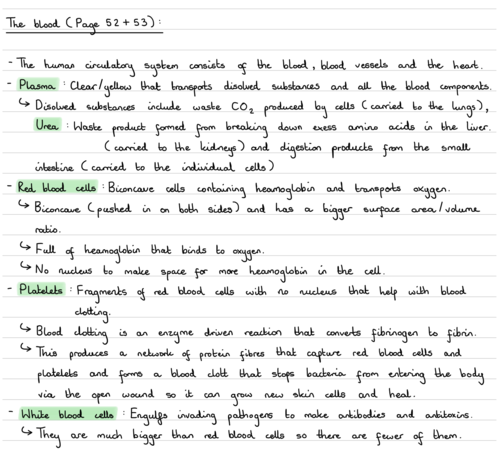 The blood (Page 52 + 53) :
- The human circulatory system consists of the blood, blood vessels and the heart.
- Plasma : Clear/yellow that transpots disolved substances and all the blood components.
↳ Disolved substances include waste CO2 produced by cells (carried to the lungs),
Urea : Waste product formed from breaking down exess amino acids in the liver.
(carried to the kidneys) and digestion products from the small
intestine (carried to the individual cells)
- Red blood cells : Biconcave cells containing heamoglobin and transports oxygen.
↳ Biconcave (pushed in on both sides) and has a bigger surface area/volume
ratio.
↳ Full of heamoglobin that binds to oxygen.
↳ No nucleus to make space for more heamoglobin in the cell.
- Platelets : Fragments of red blood cells with no nucleus that help with blood
clotting.
↳ Blood clotting is an enzyme driven reaction that converts fibrinogen to fibrin.
↳ This produces a network of protein fibres that capture red blood cells and
platelets and forms a blood clott that stops bacteria from entering the body
via the open wound so it can grow new skin cells and heal.
- White blood cells : Engulfs invading pathogens to make antibodies and antitoxins.
↳ They are much bigger than red blood cells so there are fewer of them.